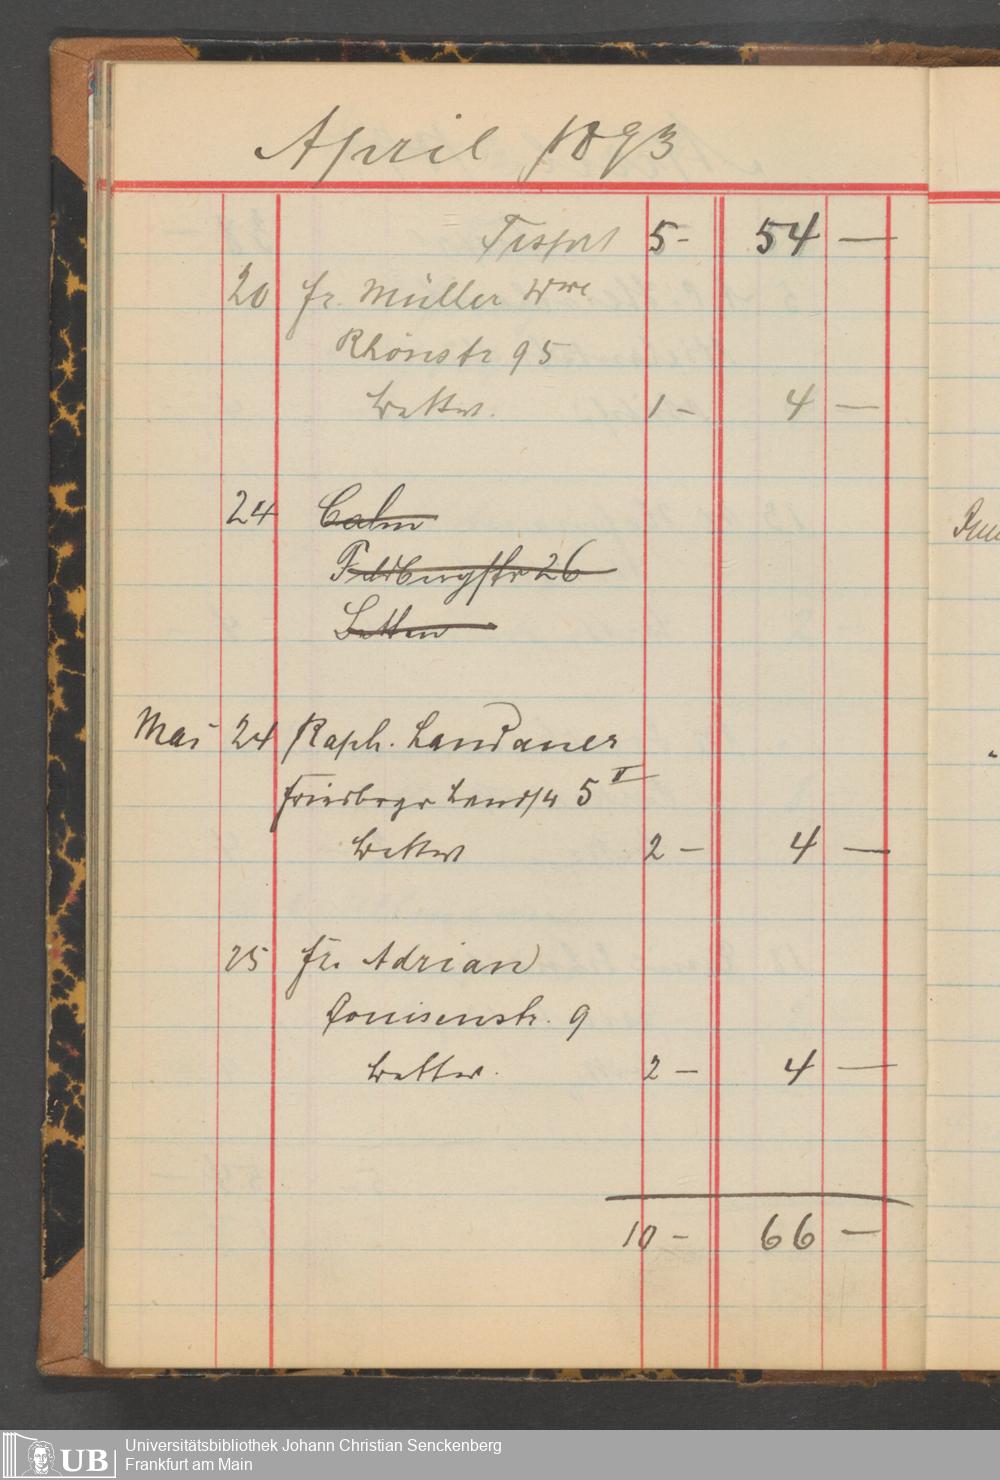 April 1893
Trsprt 5- 54 —
20 Fr. Müller Wwe
Rhönstr 95
Bettw. 1 - 4 —
24 Calm
Feldbergstr 26
Betten
Mai 24 Raph. Landauer
Friedbrgr Landstr 5 II
Bettw 2 - 4 —
25 Fr. Adrian
Louisenstr. 9
Bettw. 2 - 4 —
10 - 66 —
UB
Universitätsbibliothek Johann Christian Senckenberg
Frankfurt am Main